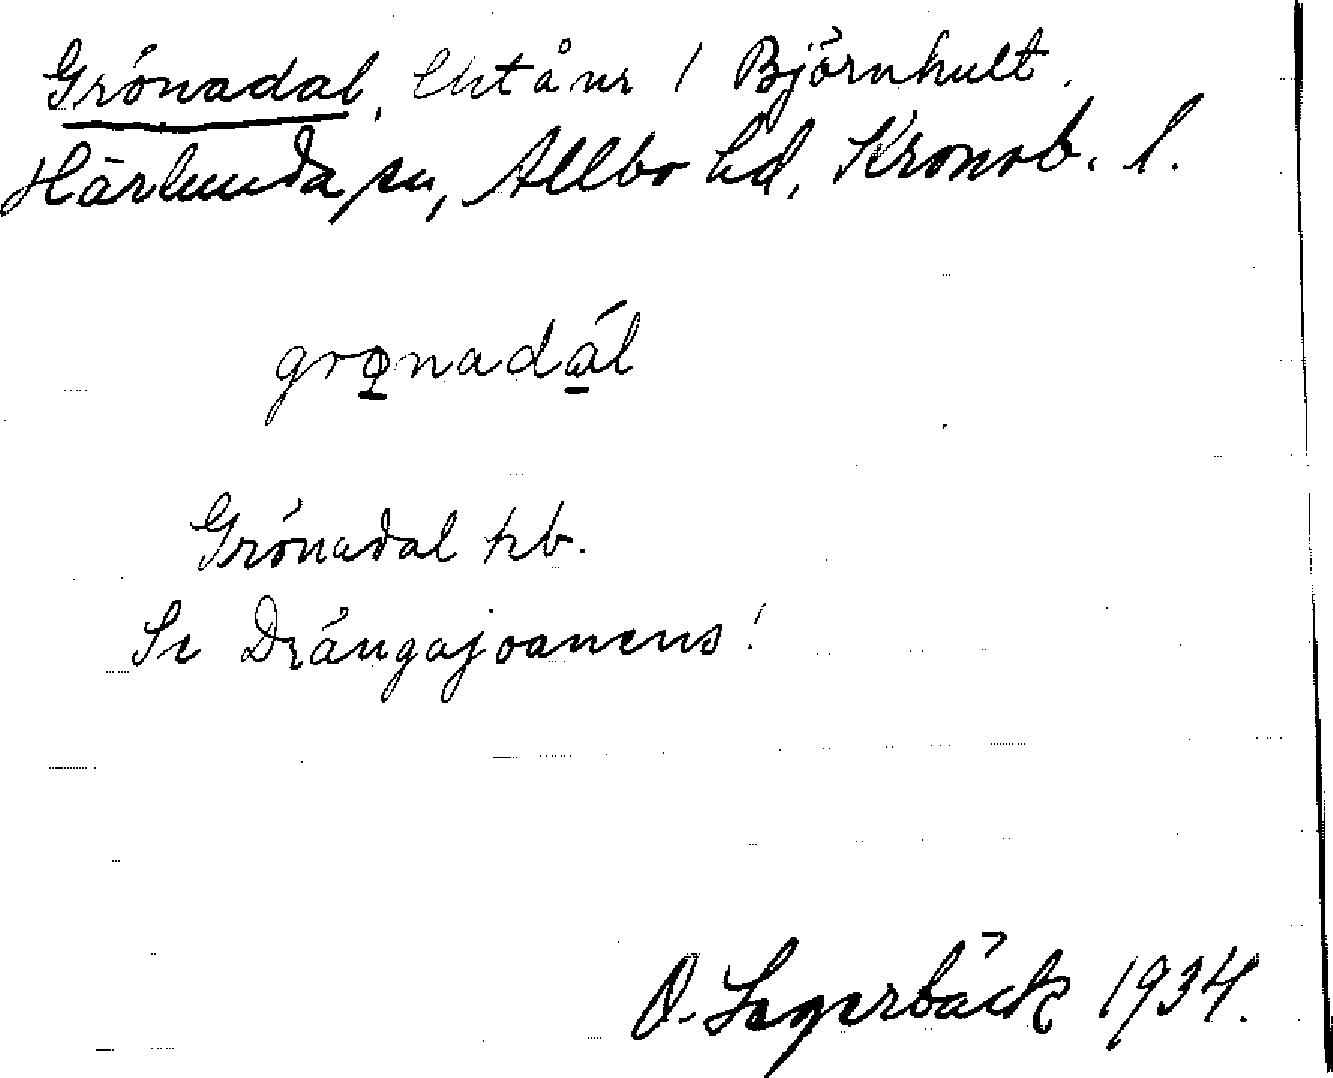 Grönadal, Utåns / Björnhult.
Härlunda sn, Allbo hd, Kronob. l.
grọnadạ́l
Grönadal hb.
Se Drängajoanens!
O. Lagerbäck 1934.